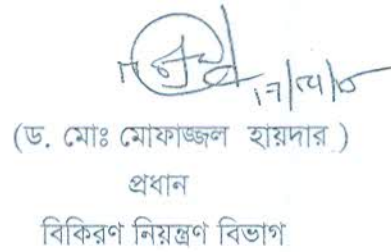 (ড. মোঃ মোফাজ্জল হায়দার )
প্রধান
বিকিরণ নিয়ন্ত্রণ বিভাগ